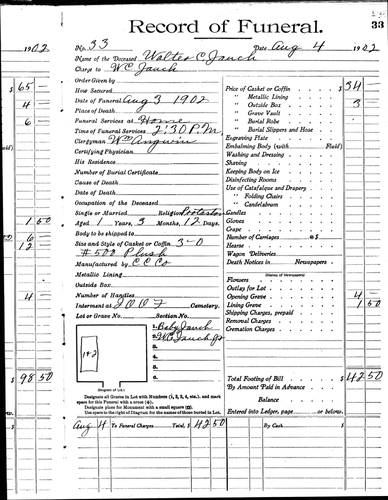 33
Record of Funeral.
1902
No. 33 Date Aug 4 1902
Name of the Deceased Walter C. Jauch
Charge to W C Jauch
Order Given by
How Secured
Date of Funeral Aug 3 1902
Place of Death
Funeral Services at Home
Time of Funeral Services 2:30 P.M.
Clergyman Wm
Certifying Physician
His Residence
Number of Burial Certificate
Cause of Death
Date of Death
Occupation of the Deceased
Single or Married Religion Protestant
Aged 1 Years, 3 Months, 12 Days.
Body to be shipped to
Size and Style of Casket or Coffin 3-0
#500 Plush
Manufactured by C C Co
Metallic Lining
Outside Box
Number of Handles
Interment at I O O F Cemetery.
Lot or Grave No. Section No.
1. Baby Jauch
2. W C Jauch Jr
3.
4.
5.
6.
1+2
(Diagram of Lot.)
Designate all Graves in Lot with Numbers (1, 2, 3, 4, etc.), and mark
space for this Funeral with a cross (+).
Designate place for Monument with a small square (□).
Use space to the right of Diagram for the names of those buried in Lot.
Aug 4 To Funeral Charges Total, $ 42 50
Price of Casket or Coffin $ 34
" Metallic Lining
" Outside Box 3
" Grave Vault
" Burial Robe
" Burial Slippers and Hose
Engraving Plate
Embalming Body (with Fluid)
Washing and Dressing
Shaving
Keeping Body on Ice
Disinfecting Rooms
Use of Catafalque and Drapery
" Folding Chairs
" Candelabrum
Candles
Gloves
Crape
Number of Carriages @ $
Hearse
Wagon Deliveries
Death Notices in Newspapers
(Names of Newspapers)
Flowers
Outlay for Lot
Opening Grave 4
Lining Grave 1 50
Shipping Charges, prepaid
Removal Charges
Cremation Charges
Total Footing of Bill $ 42 50
By Amount Paid in Advance
Balance
Entered into Ledger, page or below.
By Cash $
1902
$ 65
4
6
1 50
6
12
4
$ 98 50